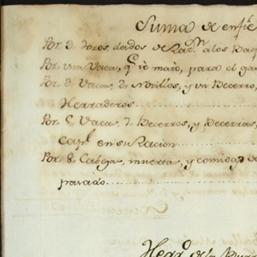 Suma de enfre
Por 3. toros, dados de Rac.n a los Baq
Por una Vaca, q.e se mató, para el ga
Por 3. Vacas, 2. Novillos, y un Becerro,
Herraderos
Por 5. Vacas, 2. Becerros, y Becerras,
Cap.l en su Racion
Por 8. Cabezas, muertas, y comidas de
pasado
Herr.o de la